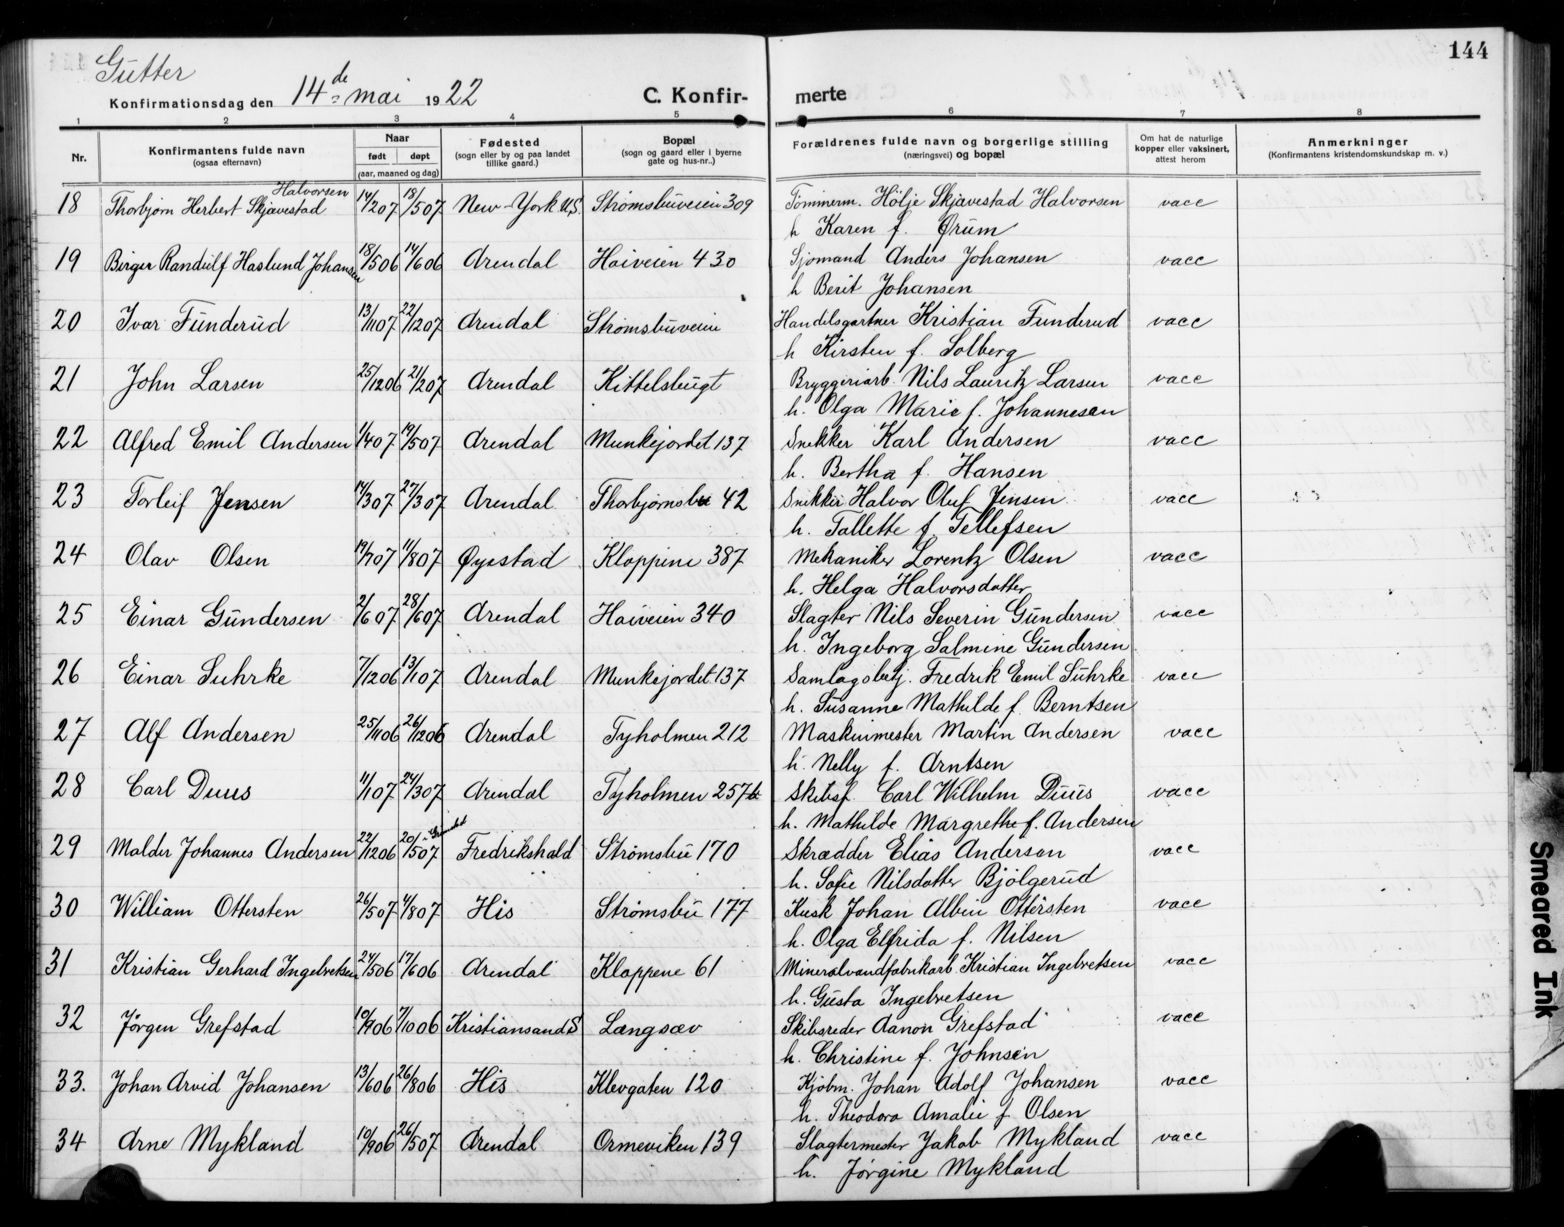 Gutter
144
Konfirmationsdag den 14de mai 1922
C. Konfir- merte
1 2 3 4 5 6 7 8
Nr.
Konfirmantens fulde navn
(ogsaa efternavn)
Naar
født døpt
(aar, maaned og dag)
Fødested
(sogn eller by og paa landet
tillike gaard.)
Bopæl
(sogn og gaard eller i byerne
gate og hus-nr..)
Forældrenes fulde navn og borgerlige stilling
(næringsvei) og bopæl
Om hat de naturlige
kopper eller vaksinert,
attest herom
Anmerkninger
(Konfirmantens kristendomskundskap m. v.)
Halvorsen
18 Thorbjørn Herbert Skjævestad 14/2 07 18/5 07 New-York U.S. Strømsbuveien 309 Tømmerm. Hölje Skjævestad Halvorsen vacc
h Karen f. Ørum
19 Birger Randulf Haslund Johansen 18/5 06 14/6 06 Arendal Haiveien 430 Sjømand Anders Johansen vacc
h Berit Johansen
20 Ivar Funderud 13/11 07 22/12 07 Arendal Strømsbuveien Handelsgartner Kristian Funderud vacc
h Kirsten f. Solberg
21 John Larsen 25/12 06 21/2 07 Arendal Kittelsbugt Bryggeriarb. Nils Lauritz Larsen vacc
h. Olga Marie f. Johannesen
22 Alfred Emil Andersen 1/4 07 19/5 07 Arendal Munkejordet 137 Snekker Karl Andersen vacc
h. Bertha f. Hansen
23 Torleif Jensen 14/3 07 27/3 07 Arendal Thorbjørnsbu 42 Snikker Halvor Oluf Jensen vacc
h. Tallette f. Tellefsen
24 Olav Olsen 19/7 07 11/8 07 Øyestad Kloppene 387 Mekaniker Lorentz Olsen vacc
h. Helga Halvorsdatter
25 Einar Gundersen 2/6 07 28/6 07 Arendal Haiveien 340 Slagter Nils Severin Gundersen vacc
h. Ingeborg Salmine Gundersen
26 Einar Suhrke 7/12 06 13/1 07 Arendal Munkejordet 137 Samlagsbetj. Fredrik Emil Suhrke vacc
h. Susanne Mathilde f. Berntsen
27 Alf Andersen 25/11 06 26/12 06 Arendal Tyholmen 212 Maskinmester Martin Andersen vacc
h. Nelly f. Arntsen
28 Carl Duus 11/1 07 24/3 07 Arendal Tyholmen 257b Skibsf. Carl Wilhelm Duus vacc
h. Mathilde Margrethe f. Andersen
29 Malder Johannes Andersen 22/12 06 20/5 07 Fredrikshald Strømsbu 170 Skrædder Elias Anderson vacc
h. Sofie Nilsdatter Bjölgerud
30 William Ottersten 26/5 07 4/8 07 His Strømsbu 177 Kusk Johan Albin Ottersten vacc
h. Olga Elfrida f. Nilsen
31 Kristian Gerhard Ingebretsen 24/5 06 17/6 06 Arendal Kloppene 61 Mineralvandfabrikarb. Kristian Ingebretsen vacc
h. Gusta Ingebretsen
32 Jørgen Grefstad 10/9 06 7/10 06 Kristiansand S Langsæv Skibsreder Aanon Grefstad vacc
h. Christine f. Johnsen
33. Johan Arvid Johansen 13/6 06 26/8 06 His Klevgaten 120 Kjøbm. Johan Adolf Johansen vacc
h. Theodora Amalie f Olsen
34 Arne Mykland 10/9 06 26/5 07 Arendal Ormeviken 139 Slagtermester Jakob Mykland vacc
h. Jørgine Mykland
Smeared Ink